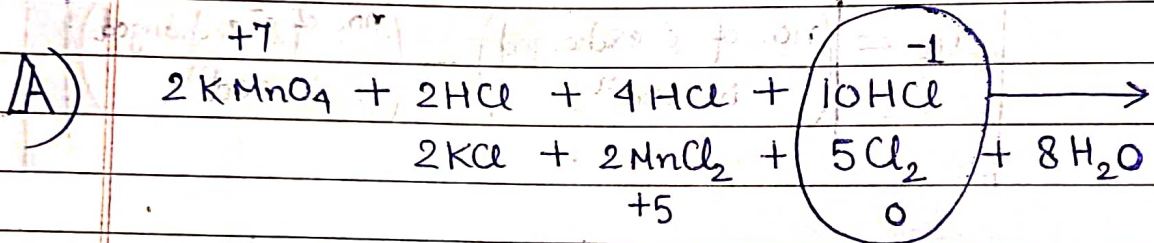 +7 -1
A) 2KMnO₄ + 2HCl + 4HCl + 10HCl ⟶
2KCl + 2MnCl₂ + 5Cl₂ + 8H₂O
+5 0